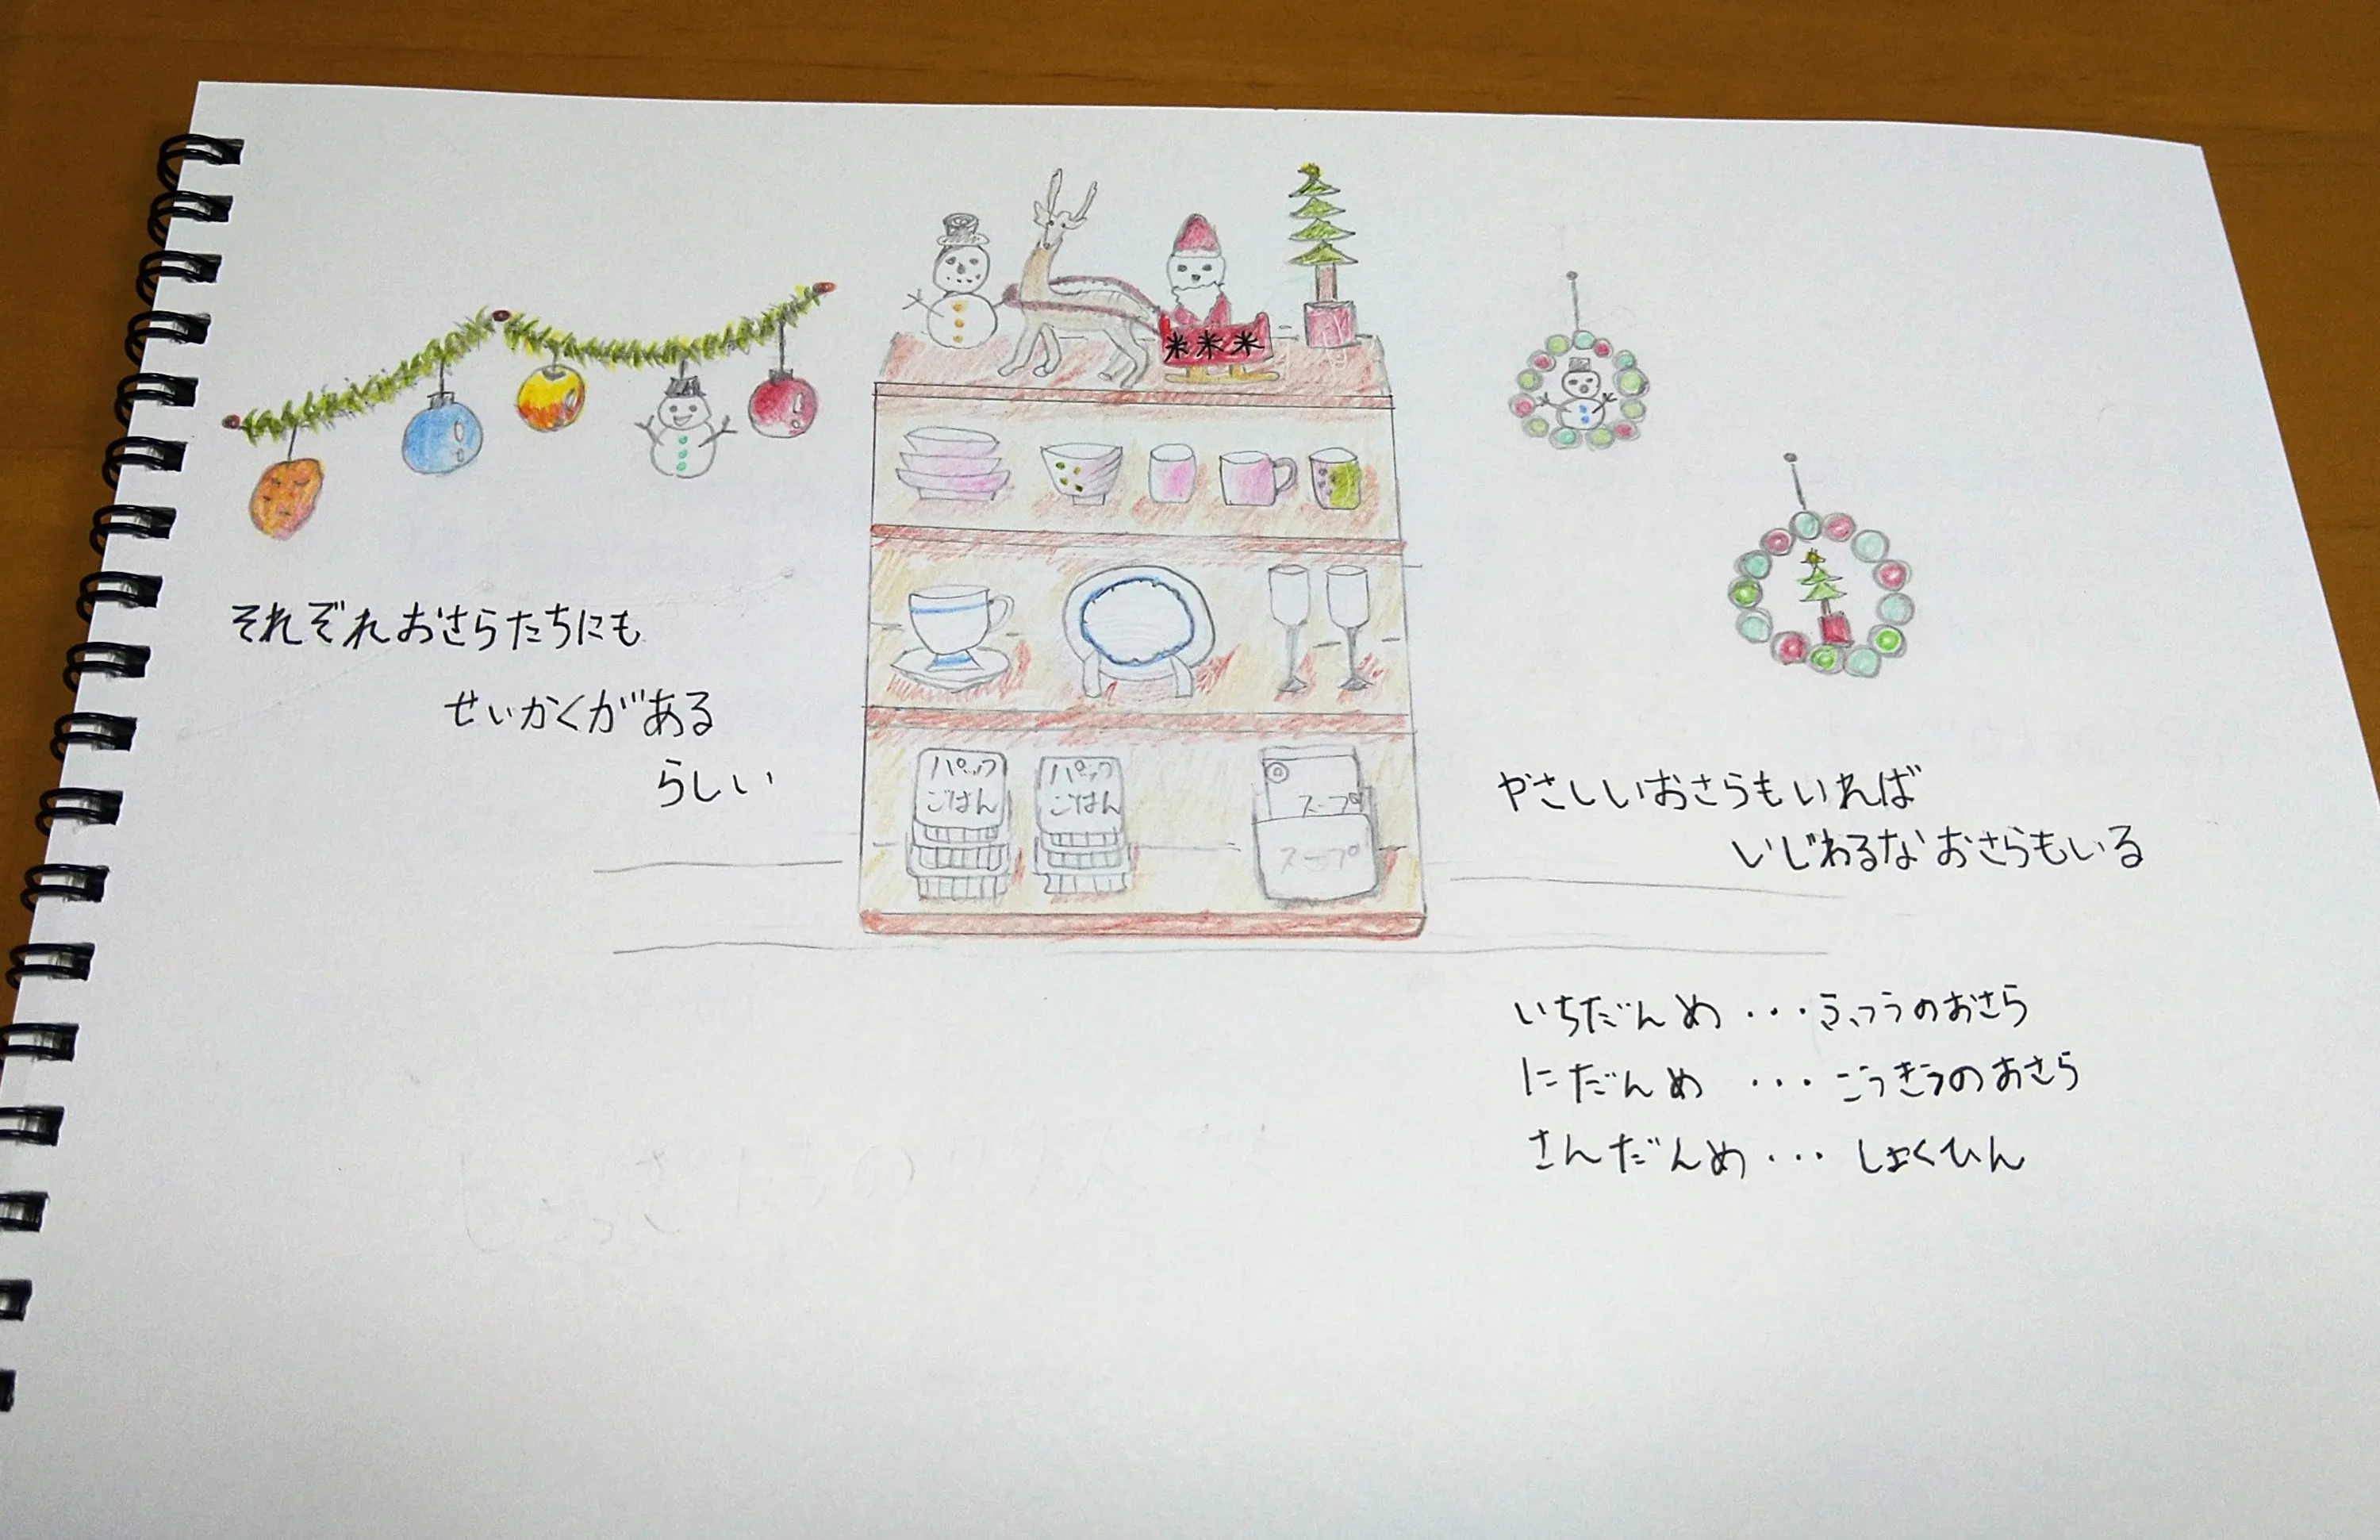 それぞれおさらたちにも
せいかくがある
らしい
パック
ごはん
パック
ごはん
スープ
スープ
やさしいおさらもいれば
いじわるなおさらもいる
いちだんめ・・・ふつうのおさら
にだんめ・・・こうきうのおさら
さんだんめ・・・しょくひん